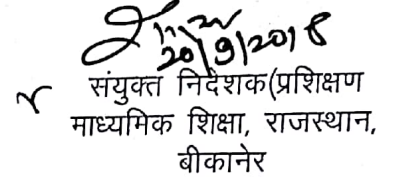 20/9/2018
संयुक्त निदेशक(प्रशिक्षण
माध्यमिक शिक्षा, राजस्थान,
बीकानेर